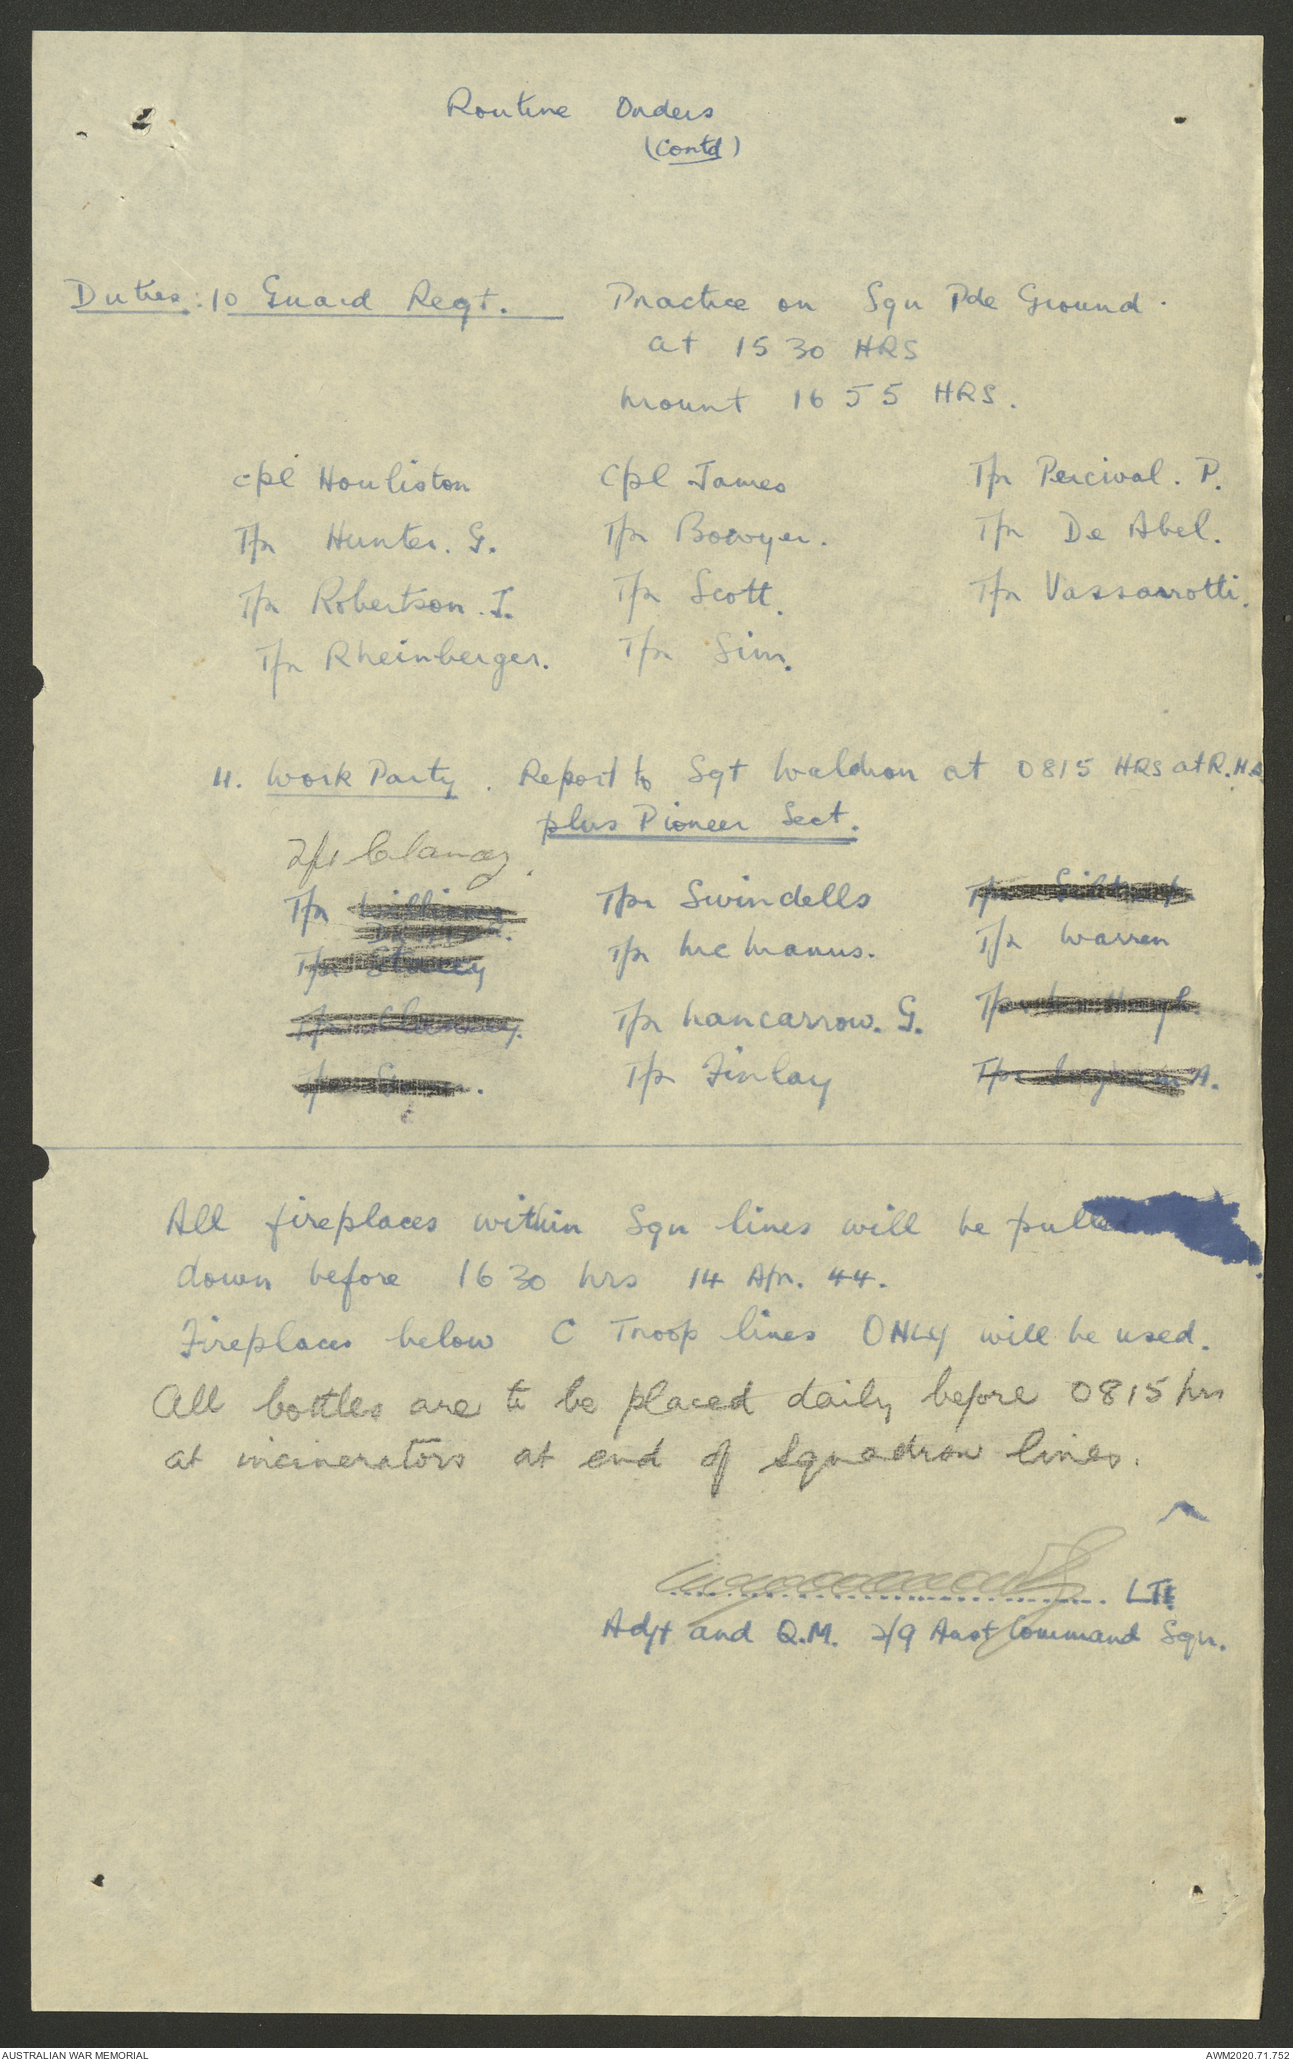 2
Routine Orders
(Contd)
Duties: 10 Guard Regt. Practice on Sqn Pde Ground.
at 1530 HRS
Mount 1655 HRS.
Cpl Houliston Cpl James Tpr Percival. P.
Tpr Hunter. G. Tpr Bowyer. Tpr De Abel.
Tpr Robertson. I. Tpr Scott. Tpr Vassarotti.
Tpr Rheinberger. Tpr Sim.
11. Work Party. Report to Sgt Waldron at 0815 HRS at R.H.Q
plus Pioneer Sect.
Tpr Clancy.
Tpr Tpr Swindells Tpr
Tpr Stacey Tpr McManus. Tpr Warren
Tpr Clancy. Tpr Nancarrow. G. Tpr
Tpr Tpr Finlay Tpr A.
All fireplaces within Sqn lines will be pulled
down before 1630 hrs 14 Apr. 44.
Fireplaces below C Troop lines ONLY will be used.
All bottles are to be placed daily before 0815 hrs
at incinerators at end of Squadron lines.
LT.
Adjt and Q.M. 2/9 Aust Command Sqn.
AUSTRALIAN WAR MEMORIAL AWM2020.71.752